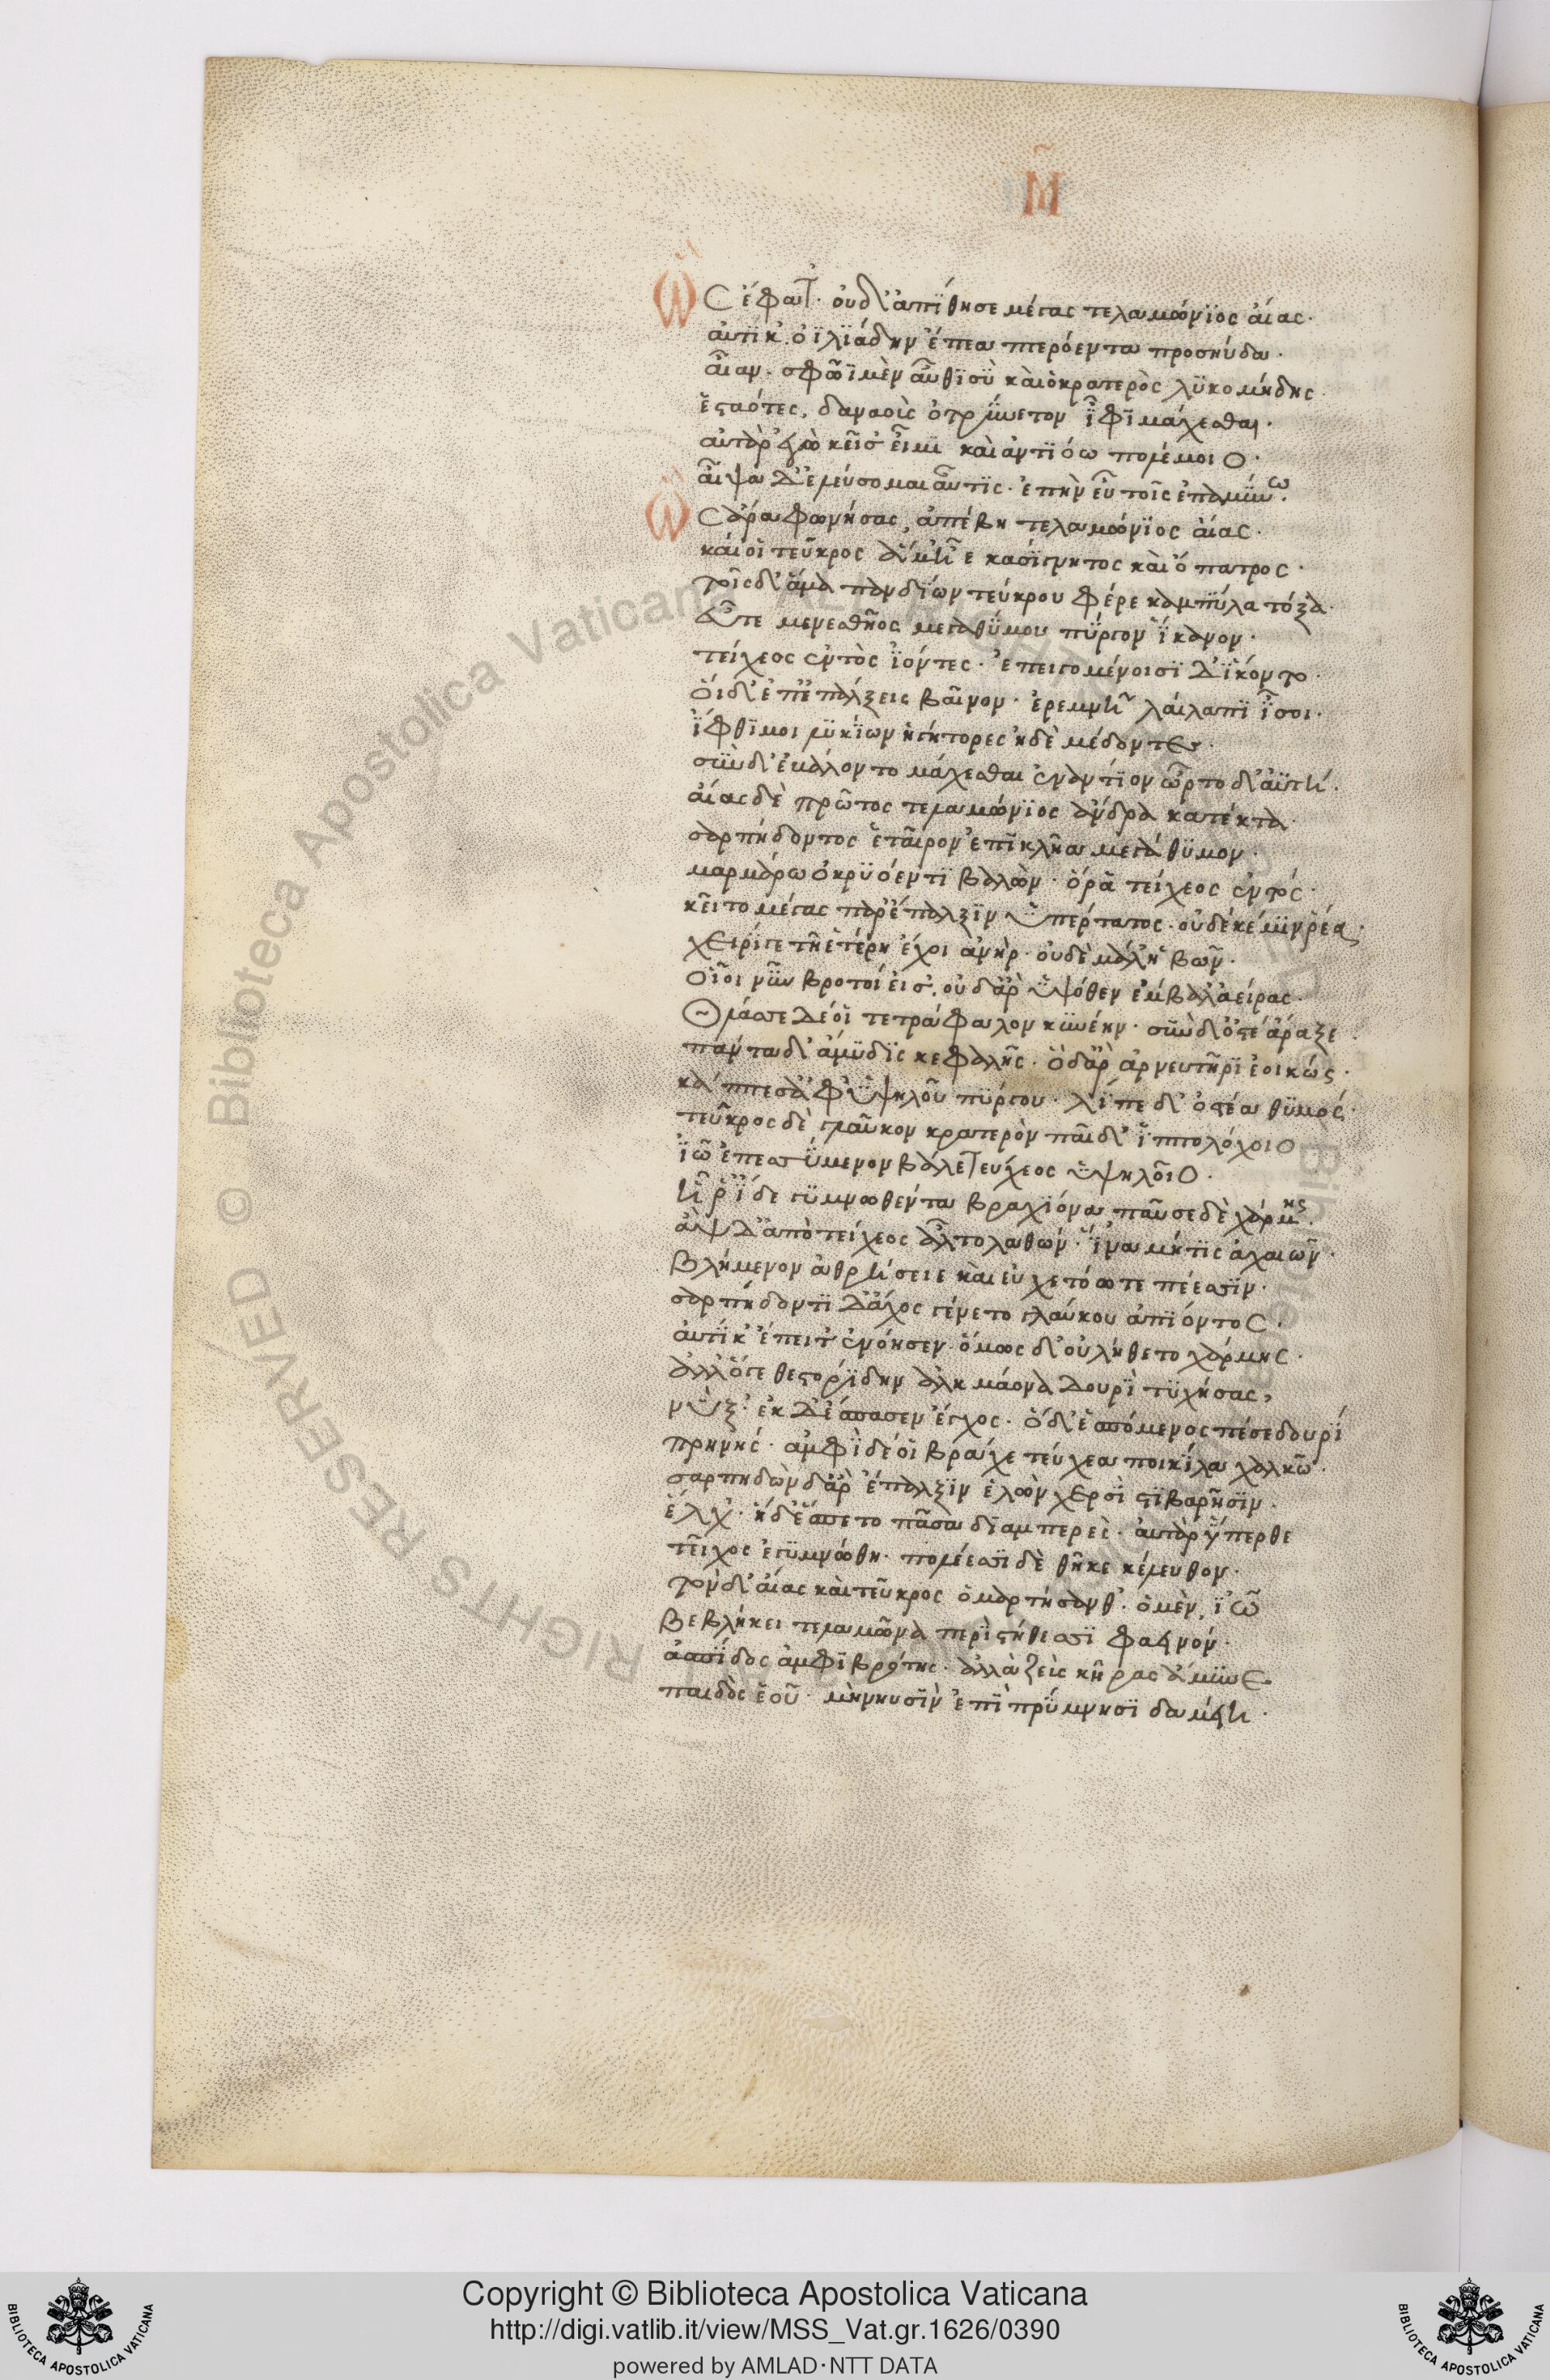 Μ
Ὣς ἔφατ'. οὐδ' ἀπίθησε μέγας τελαμώνϊος αἴας.
αὐτίκ' ὀϊλϊάδην ἔπεα πτερόεντα προσηύδα.
αἶαν. σφῶϊ μὲν αὖθϊ σὺ καὶ ὁ κρατερὸς λϋκομήδης
ἑσταότες, δαναοὺς ὀτρύνετον ἶφι μάχεσθαι.
αὐτὰρ ἐγὼ κεῖσ' εἶμι καὶ ἀντιόω πολέμοιο.
αἶψα δ' ἐλεύσομαι αὖτις. ἐπὴν εὖ τοῖς ἐπαμύνω.
Ὣς ἄρα φωνήσας, ἀπέβη τελαμώνϊος αἴας.
καί οἱ τεῦκρος ἅμ' ᾖε κασίγνητος καὶ ὄπατρος.
τοῖς δ' ἅμα πανδίων τεύκρου φέρε καμπύλα τόξα.
εὖτε μενεσθῆος μεγαθύμου πύργον ἵκανον.
τείχεος ἐντὸς ἰόντες. ἐπειγομένοισι δ' ἵκοντο.
οἱ δ' ἐπ' ἐπάλξεις βαῖνον. ἐρεμνῇ λαίλαπι ἶσοι.
ἴφθιμοι λυκίων ἡγήτορες ἠδὲ μέδοντες.
σὺν δ' ἐβάλοντο μάχεσθαι ἐναντίον ὦρτο δ' ἀϋτή.
αἴας δὲ πρῶτος τελαμώνϊος ἄνδρα κατέκτα.
σαρπήδοντος ἑταῖρον ἐπικλῆα μεγάθυμον.
μαρμάρω ὀκρϋόεντι βαλὼν. ὅ ρα τείχεος ἐντός.
κεῖτο μέγας παρ' ἔπαλξιν ὑπέρτατος. οὐδέ κέ μιν ρέα.
χείρϊ γε τῆ ἑτέρη ἔχοι ἀνὴρ. οὐδὲ μάλ' ἡβῶν.
οἷοι νῦν βροτοί εἰσ'. ὁ δ' ἄρ' ὑψόθεν ἔμβαλ' ἀείρας.
θλάσσε δέ οἱ τετράφαλον κυνέην. σὺν δ' ὀστέ' ἄραξε.
πάντα δ' ἄμυδις κεφαλῆς. ὁ δ' ἄρ' ἀρνευτῆρι ἐοικώς.
κάππεσ' ἀφ' ὑψηλοῦ πύργου. λίπε δ' ὀστέα θυμός.
τεῦκρος δὲ γλαῦκον κρατερὸν παῖδ' ἱππολόχοιο
ἰῶ ἐπεσσύμενον βάλε τείχεος ὑψηλοῖο.
ᾗ ῥ' ἴδε γυμνωθέντα βραχίονα παῦσε δὲ χάρμης.
ἂψ δ' ἀπὸ τείχεος ἆλτο λαθών. ἵνα μήτις ἀχαιῶν.
βλήμενον ἀθρήσειε καὶ εὐχετόωτ' ἐπέεσσιν.
σαρπήδοντι δ' ἄχος γένετο γλαύκου ἀπιόντος.
αὐτίκ' ἔπειτ' ἐνόησεν. ὅμως δ' οὐ λήθετο χάρμης.
ἀλλ' ὅγε θεστορίδην ἀλκμάονα δουρὶ τυχήσας,
νύξ'. ἐκ δ' ἔσπασεν ἔγχος. ὁ δ' ἑσπόμενος πέσε δουρί
πρηνής. ἀμφὶ δέ οἱ βράχε τεύχεα ποικίλα χαλκῶ.
σαρπηδὼν δ' ἄρ' ἔπαλξιν ἑλὼν χερσὶ στιβαρῆσιν.
ἕλχ'. ἡ δ' ἕσπετο πᾶσα διαμπερές. αὐτὰρ ὕπερθε
τεῖχος ἐγυμνώθη. πολέεσσι δὲ θῆκε κέλευθον.
τὸν δ' αἴας καὶ τεῦκρος ὁμαρτήσανθ'. ὁ μὲν, ἰῶ
βεβλήκει τελαμῶνα περὶ στήθεσσι φαεινόν.
ἀσπίδος ἀμφιβρότης. ἀλλὰ ζεὺς κῆρας ἄμυνε
παιδὸς ἑοῦ. μὴ νηυσὶν ἐπὶ πρύμνησι δαμείη.
Copyright © Biblioteca Apostolica Vaticana
http://digi.vatlib.it/view/MSS_Vat.gr.1626/0390
powered by AMLAD·NTT DATA